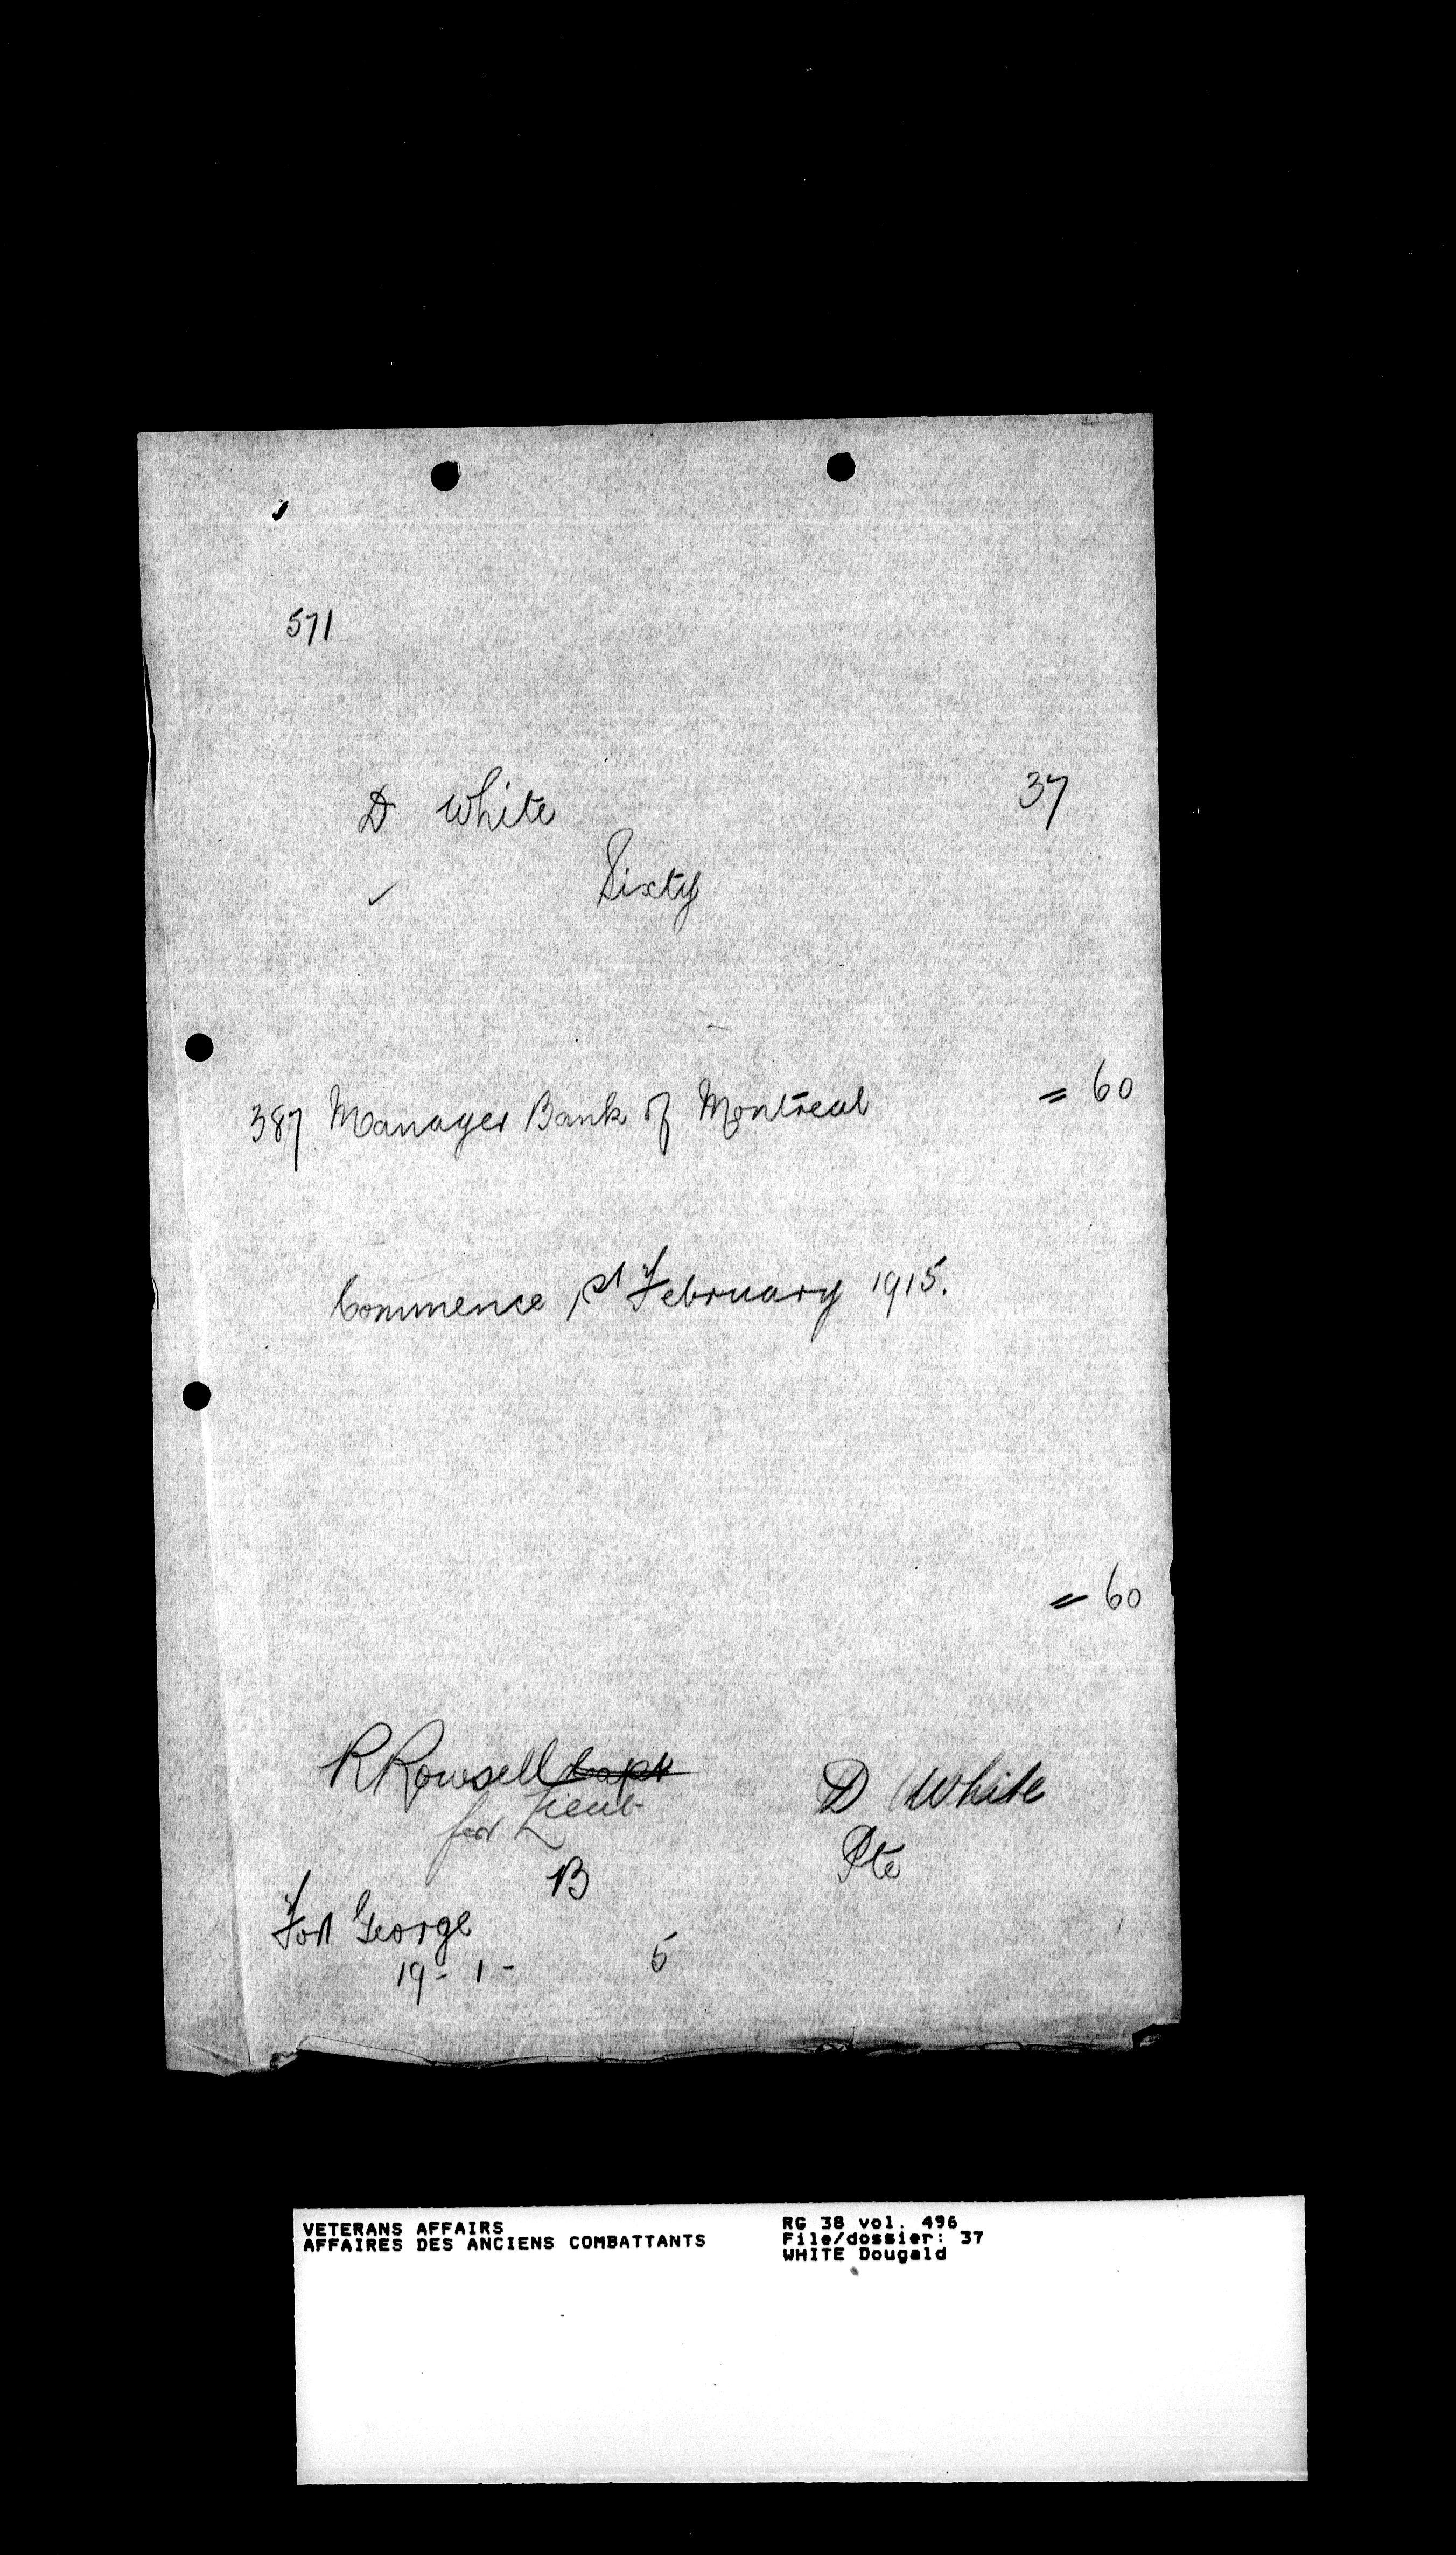 571
D White 37
✓ Sixty
387 Manager Bank of Montreal = 60
Commence 1st February 1915.
= 60
R Rowsell Capt
for Lieut
D White
Pte
B
Fort George
19 - 1 - 5
VETERANS AFFAIRS
AFFAIRES DES ANCIENS COMBATTANTS
RG 38 vol. 496
File/dossier: 37
WHITE Dougald